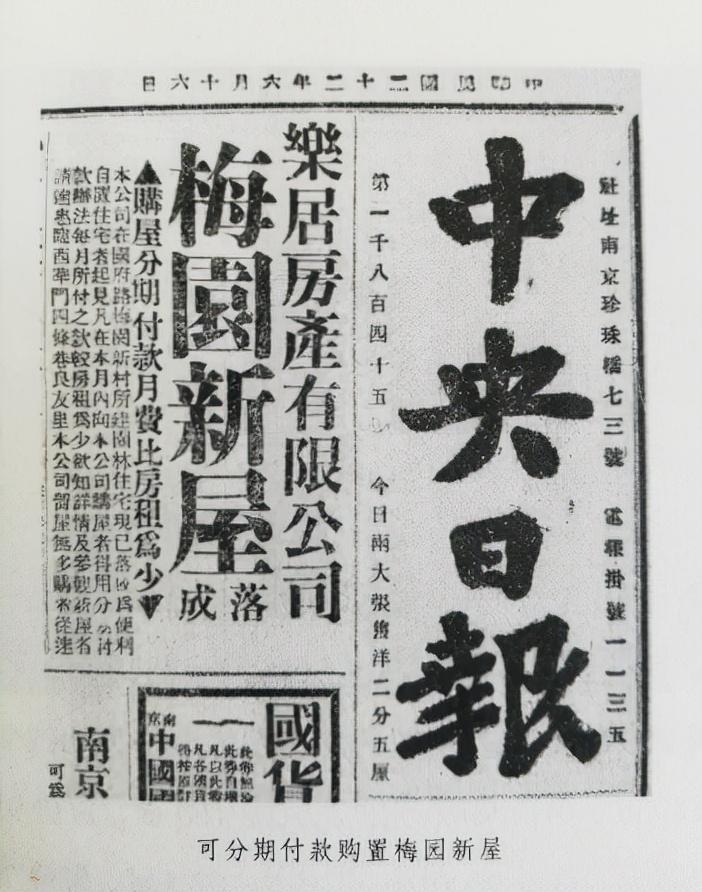 中華民國二十二年六月十六日
社址南京珍珠橋七三號 電報掛號一一三五
中央日報
第一千八百四十五 今日兩大張售洋二分五厘
樂居房產有限公司
梅園新屋落成
▲購屋分期付款月費比房租爲少▼
本公司在國府路梅園新村所建園林住宅現已落成爲便利
自置住宅者起見凡在本月內向本公司購屋者得用分期付
款辦法每月所付之款較房租爲少欲知詳情及參觀新屋者
請惠臨西華門四條巷良友里本公司留屋無多購者從速
國貨
南京中國
南京
可爲
可分期付款购置梅园新屋